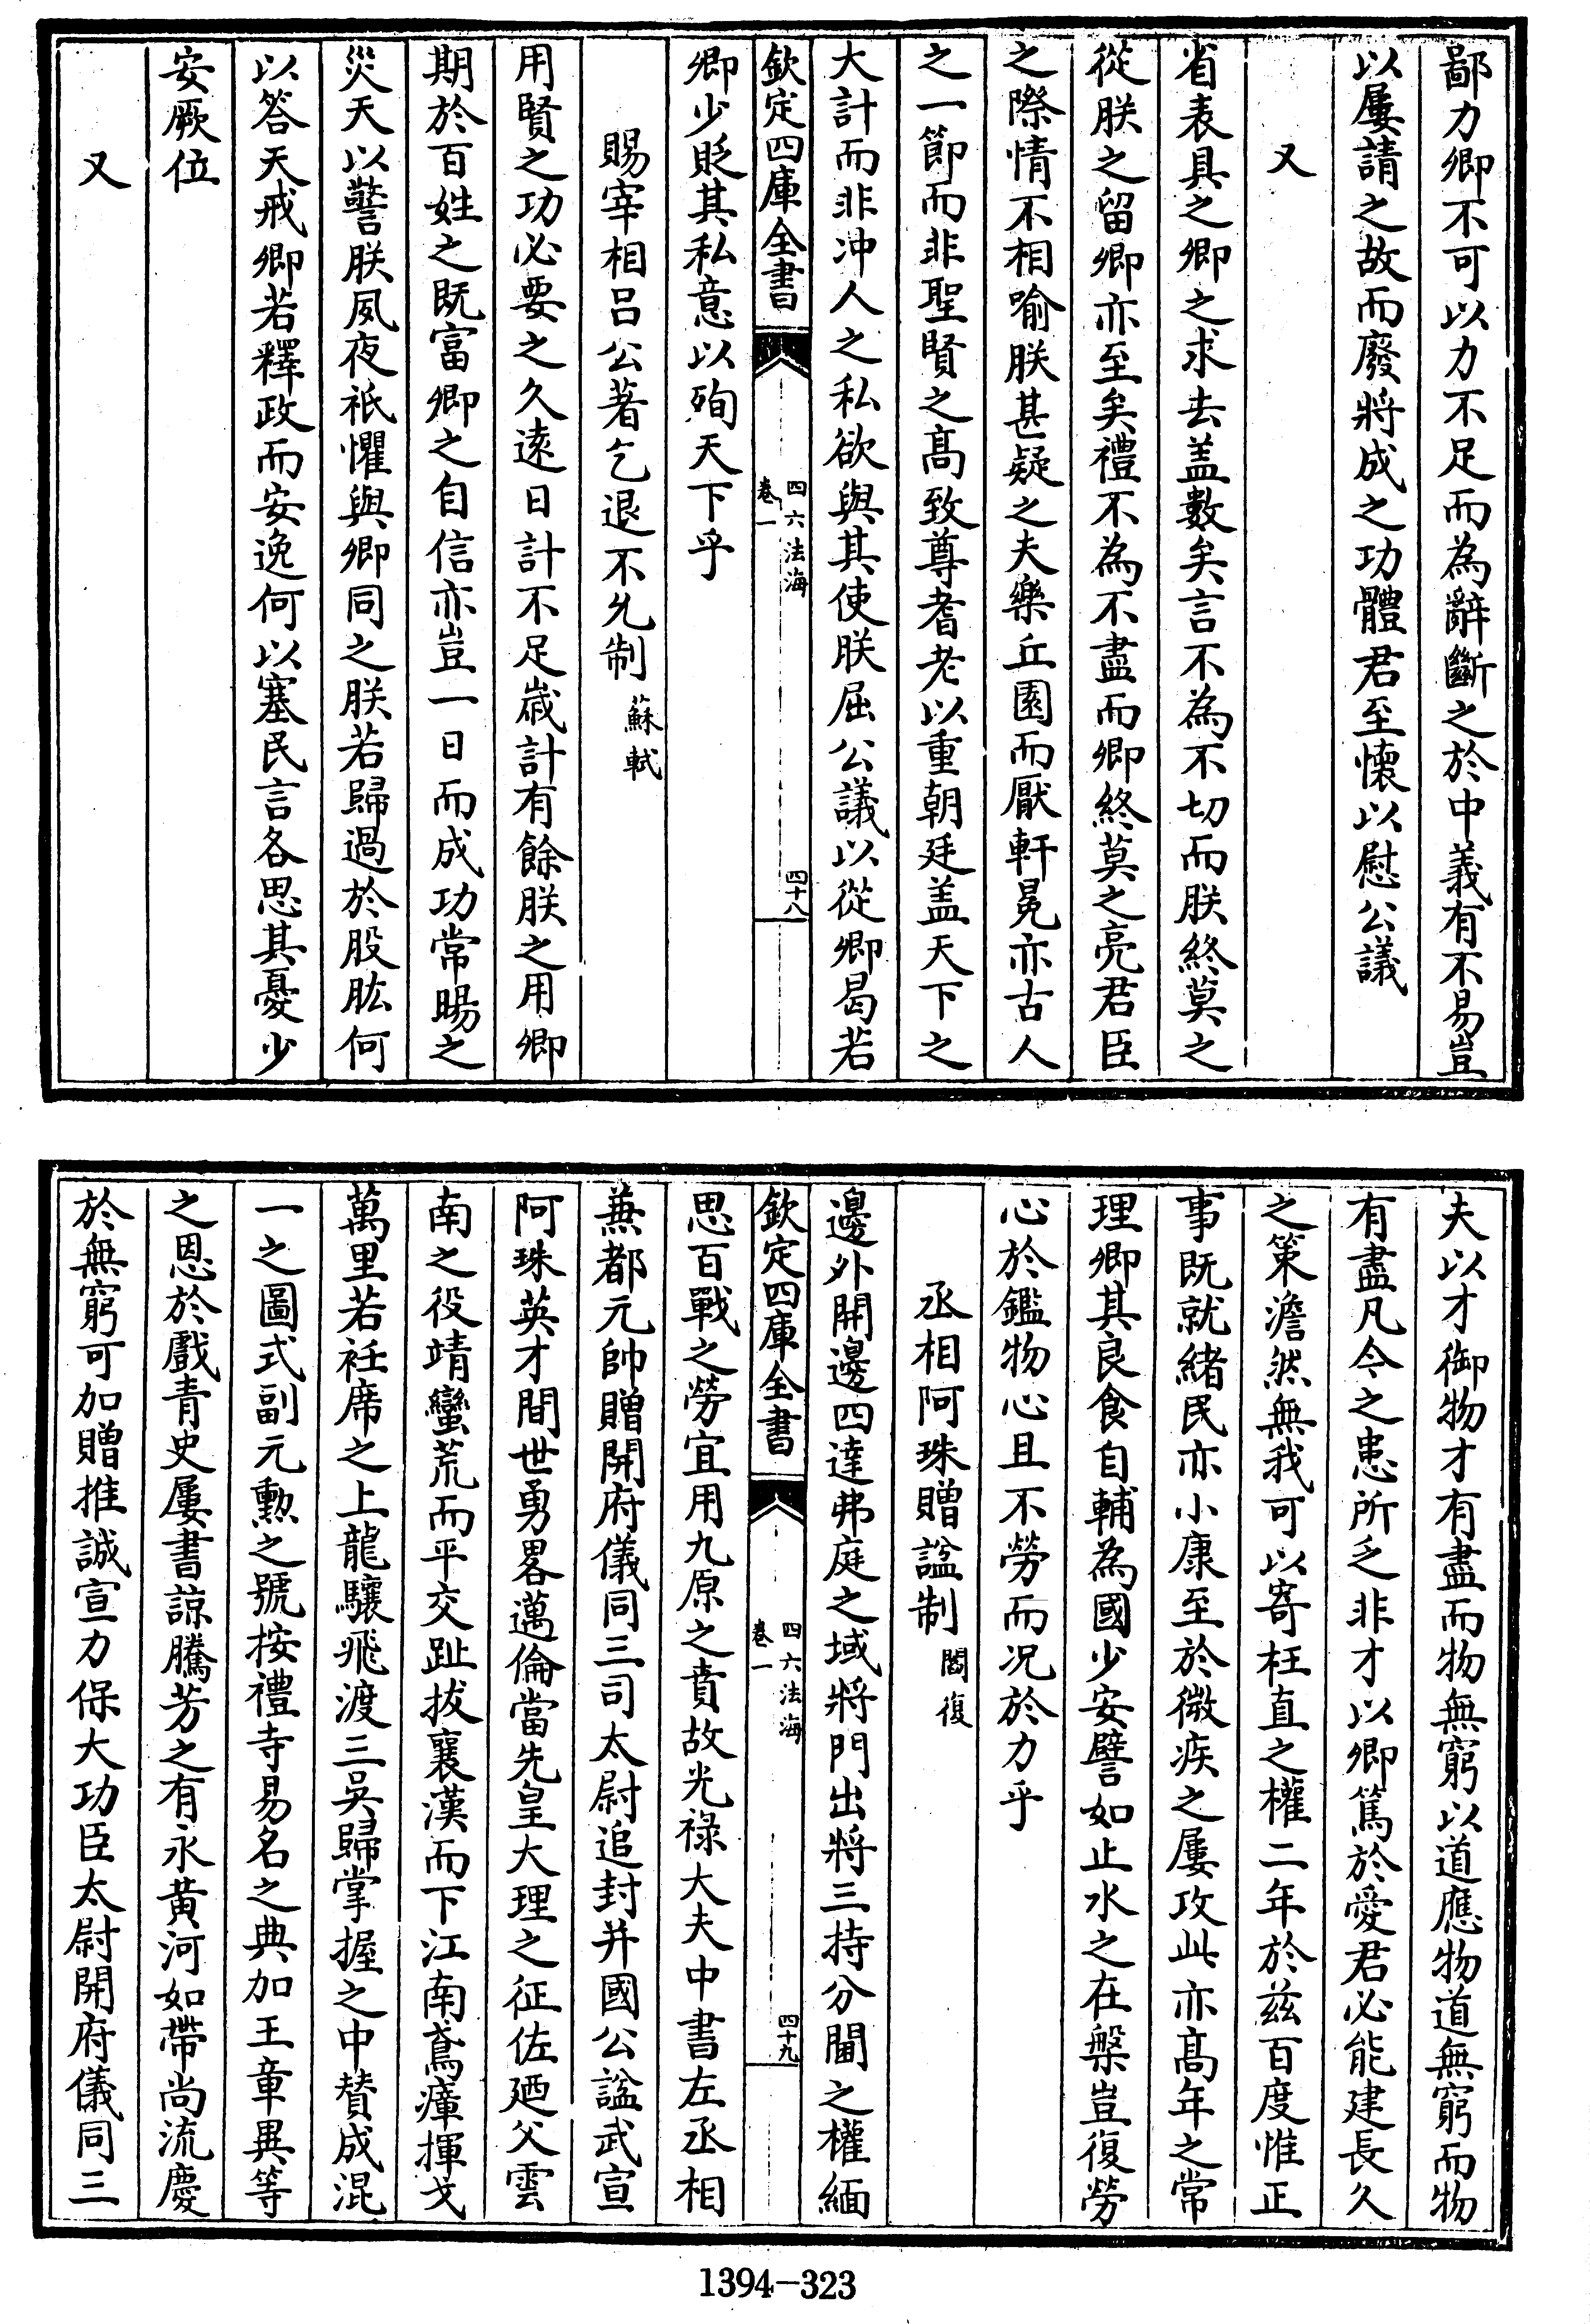 鄙力卿不可以力不足而為辭斷之於中義有不易豈
以屢請之故而廢將成之功體君至懷以慰公議
又
省表具之卿之求去盖數矣言不為不切而朕終莫之
從朕之留卿亦至矣禮不為不盡而卿終莫之亮君臣
之際情不相喻朕甚疑之夫樂丘園而厭軒冕亦古人
之一節而非聖賢之高致尊耆老以重朝廷盖天下之
大計而非冲人之私欲與其使朕屈公議以從卿曷若
欽定四庫全書
四六法海
卷一
四十八
卿少貶其私意以殉天下乎
賜宰相呂公著乞退不允制 蘇軾
用賢之功必要之久逺日計不足嵗計有餘朕之用卿
期於百姓之既富卿之自信亦豈一日而成功常暘之
災天以警朕夙夜祇懼與卿同之朕若歸過於股肱何
以答天戒卿若釋政而安逸何以塞民言各思其憂少
安厥位
又
夫以才御物才有盡而物無窮以道應物道無窮而物
有盡凡今之患所乏非才以卿篤於愛君必能建長久
之策澹然無我可以寄枉直之權二年於兹百度惟正
事既就緒民亦小康至於微疾之屢攻此亦高年之常
理卿其良食自輔為國少安譬如止水之在槃豈復勞
心於鑑物心且不勞而况於力乎
丞相阿珠贈諡制 閻復
邊外開邊四達弗庭之域將門出將三持分閫之權緬
欽定四庫全書
四六法海
卷一
四十九
思百戰之勞宜用九原之賁故光祿大夫中書左丞相
兼都元帥贈開府儀同三司太尉追封并國公諡武宣
阿珠英才間世勇畧邁倫當先皇大理之征佐廼父雲
南之役靖蠻荒而平交趾拔襄漢而下江南鳶瘴揮戈
萬里若衽席之上龍驤飛渡三吳歸掌握之中賛成混
一之圖式副元勲之號按禮寺易名之典加王章異等
之恩於戲青史屢書諒騰芳之有永黄河如帶尚流慶
於無窮可加贈推誠宣力保大功臣太尉開府儀同三
1394-323